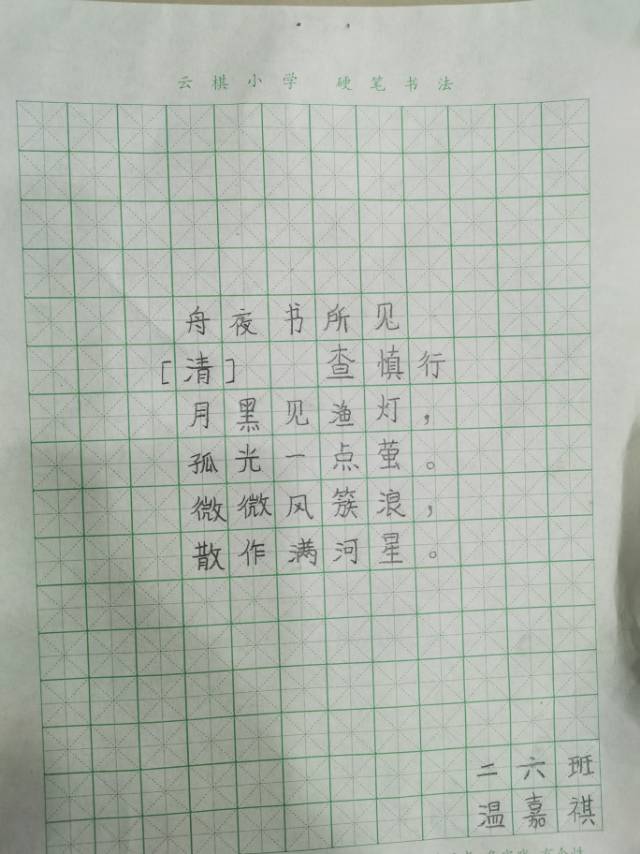 云棋小学 硬笔书法
舟夜书所见
[清] 查慎行
月黑见渔灯，
孤光一点萤。
微微风簇浪，
散作满河星。
二六班
温嘉祺